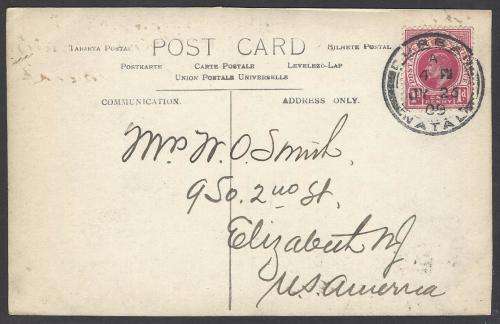 POST CARD
TARJETA POSTAL
BILHETE POSTAL
POSTKARTE CARTE POSTALE LEVELEZO-LAP
UNION POSTALE UNIVERSELLE
COMMUNICATION.
ADDRESS ONLY.
DURBAN
A
4 PM
24
09
NATAL
Mrs W. O. Smith,
9 So. 2nd St,
Elizabeth NJ
U.S. America